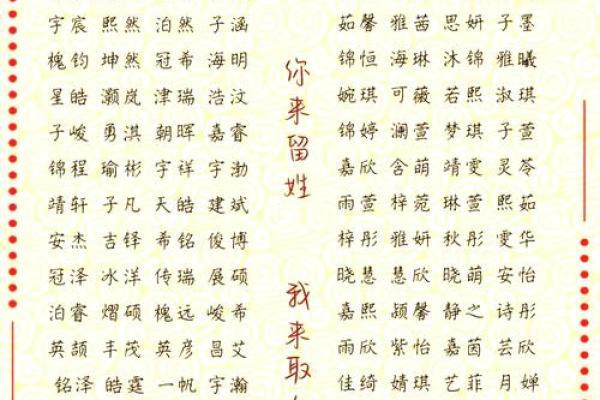 宇宸 熙然 泊然 子涵
槐钧 坤然 冠希 海明
星皓 灏岚 津瑞 浩汶
子峻 勇淇 朝晖 嘉睿
锦程 瑜彬 宇祥 宇渤
靖轩 子凡 天皓 建斌
安杰 吉铎 希铭 俊博
冠泽 冰洋 传瑞 展硕
泊睿 熠硕 槐远 峻希
英颉 丰茂 英彦 昌艾
铭泽 皓霆 一帆 宇瀚
你来留姓
我来取
茹馨 雅茜 思妍 子墨
锦恒 海琳 沐锦 雅曦
婉琪 可薇 若熙 淑琪
锦婷 澜萱 梦琪 子萱
嘉欣 含萌 靖雯 灵苓
雨萱 梓菀 琳萱 熙茹
梓彤 雅妍 秋彤 雯华
晓慧 慧欣 晓萌 安怡
嘉熙 颍馨 静之 诗彤
雨欣 紫怡 嘉茵 芸欣
佳绮 婧琪 艺菲 月婵